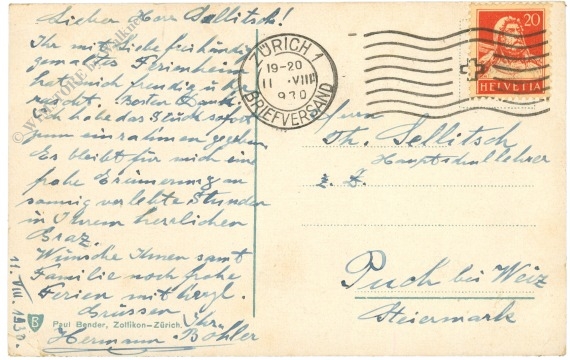 Lieber Herr Sellitsch!
Ihr mit Liebe freihändig
gemaltes Ferienheim
hat mich freudig über-
rascht. Besten Dank!
Ich habe das Stück sofort
zum einrahmen gegeben
Es bleibt für mich eine
frohe Erinnerung an
sonnig verlebte Stunden
in Ihrem herrlichen
Graz.
Wünsche Ihnen samt
Familie noch frohe
Ferien mit herzl.
Grüssen
Ihr
Hermann Böhler
11. VIII. 1930.
Paul Bender, Zollikon-Zürich.
B
ZÜRICH 1
19-20
11. VIII
930
BRIEFVERSAND
20
HELVETIA
Herrn
Th. Sellitsch
Hauptschullehrer
z. Z.
Puch bei Weiz
Steiermark